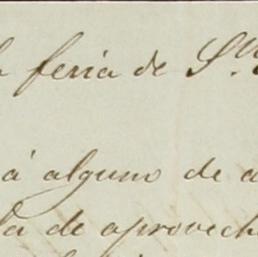 feria de S.n
á alguno de
da de aprovech